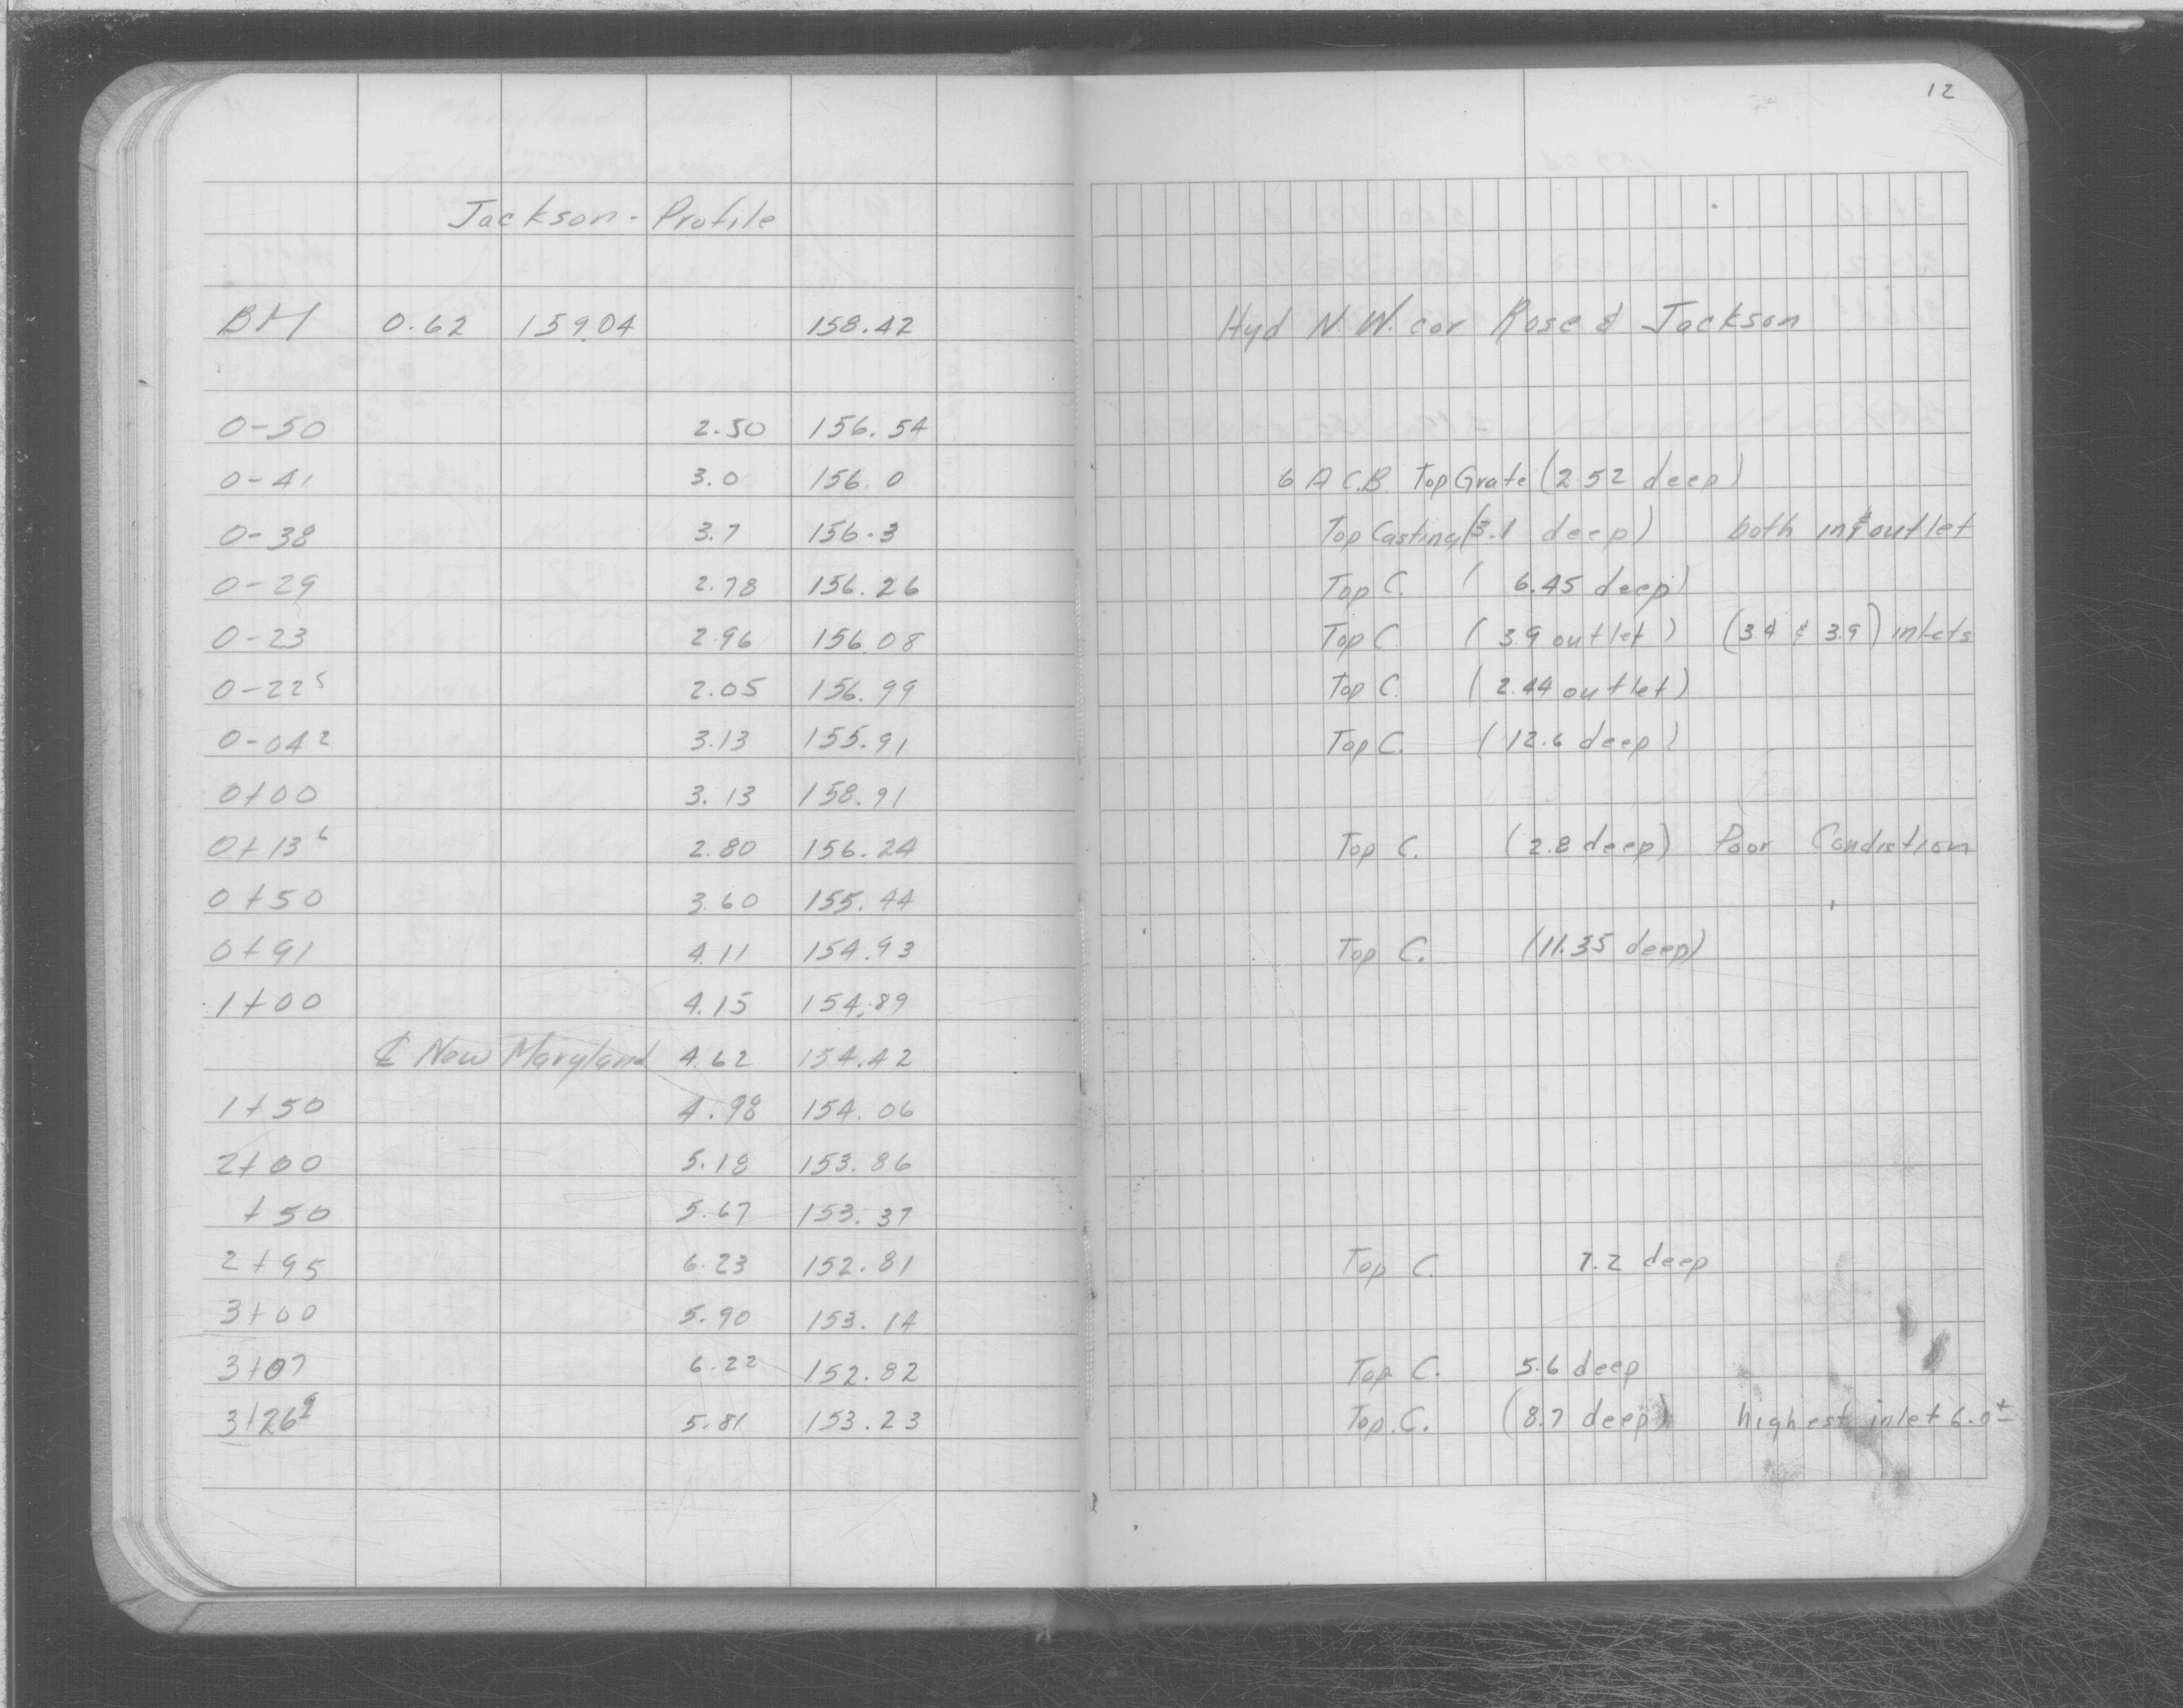 12
Jackson - Profile
BM 0.62 159.04 158.42 Hyd N.W. cor Rose & Jackson
0-50 2.50 156.54
0-41 3.0 156.0 6 A C.B. Top Grate (2.52 deep)
0-38 3.7 156.3 Top Casting (3.1 deep) both in & outlet
0-29 2.78 156.26 Top C. (6.45 deep)
0-23 2.96 156.08 Top C. (3.9 outlet) (3.4 & 3.9) inlets
0-22⁵ 2.05 156.99 Top C. (2.44 outlet)
0-04² 3.13 155.91 Top C. (12.6 deep)
0+00 3.13 158.91
0+13⁶ 2.80 156.24 Top C. (2.8 deep) Poor Condistion
0+50 3.60 155.44
0+91 4.11 154.93 Top C. (11.35 deep)
1+00 4.15 154.89
℄ New Maryland 4.62 154.42
1+50 4.98 154.06
2+00 5.18 153.86
+50 5.67 153.37
2+95 6.23 152.81 Top C. 7.2 deep
3+00 5.90 153.14
3+07 6.22 152.82 Top C. 5.6 deep
3+26⁹ 5.81 153.23 Top.C. (8.7 deep) highest inlet 6.0±